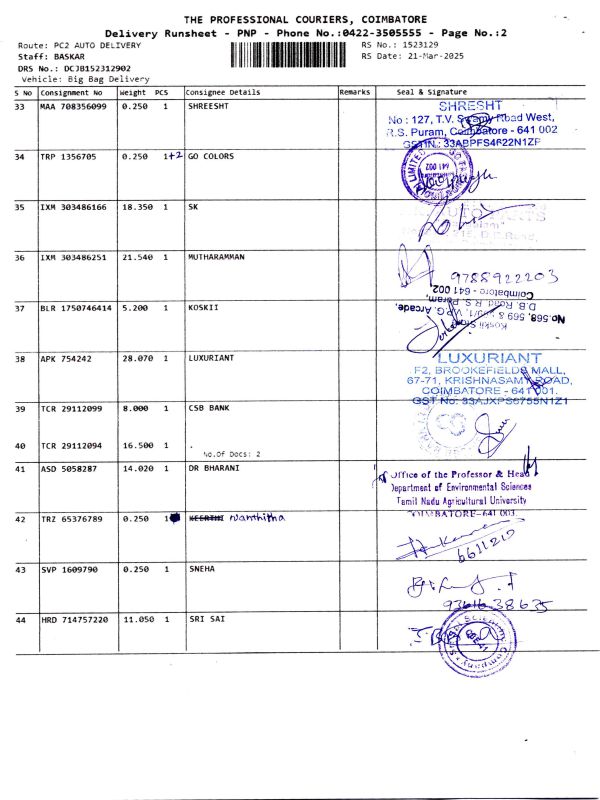 THE PROFESSIONAL COURIERS, COIMBATORE
Delivery Runsheet - PNP - Phone No.:0422-3505555 - Page No.:2
Route: PC2 AUTO DELIVERY RS No.: 1523129
Staff: BASKAR RS Date: 21-Mar-2025
DRS No.: DCJB152312902
Vehicle: Big Bag Delivery
S No Consignment No Weight PCS Consignee Details Remarks Seal & Signature
33 MAA 708356099 0.250 1 SHREESHT
SHRESHT
No : 127, T.V. Swamy Road West,
R.S. Puram, Coimbatore - 641 002
GSTIN.: 33ABPFS4622N1ZP
34 TRP 1356705 0.250 1+2 GO COLORS
LIMITED
641 002
35 IXM 303486166 18.350 1 SK
36 IXM 303486251 21.540 1 MUTHARAMMAN
9788922203
37 BLR 1750746414 5.200 1 KOSKII
Koskii
No.568, 569
D.B. Road, R.S. Puram,
Coimbatore - 641 002
38 APK 754242 28.070 1 LUXURIANT
LUXURIANT
F2, BROOKEFIELDS MALL,
67-71, KRISHNASAMY ROAD,
COIMBATORE - 641 001.
GST No: 33AJXPS6755N1Z1
39 TCR 29112099 8.000 1 CSB BANK
40 TCR 29112094 16.500 1 .
No.Of Docs: 2
41 ASD 5058287 14.020 1 DR BHARANI
Office of the Professor & Head
Department of Environmental Sciences
Tamil Nadu Agricultural University
COIMBATORE-641 003.
42 TRZ 65376789 0.250 1 KEERTHI Nanthitha
6611210
43 SVP 1609790 0.250 1 SNEHA
9361638635
44 HRD 714757220 11.050 1 SRI SAI